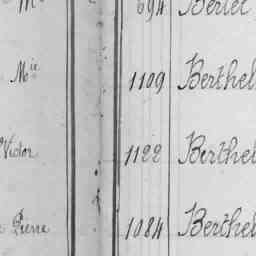 694 Bertel
Mie 1109 Berthel
Victor 1122 Berthel
Pierre 1084 Berthel